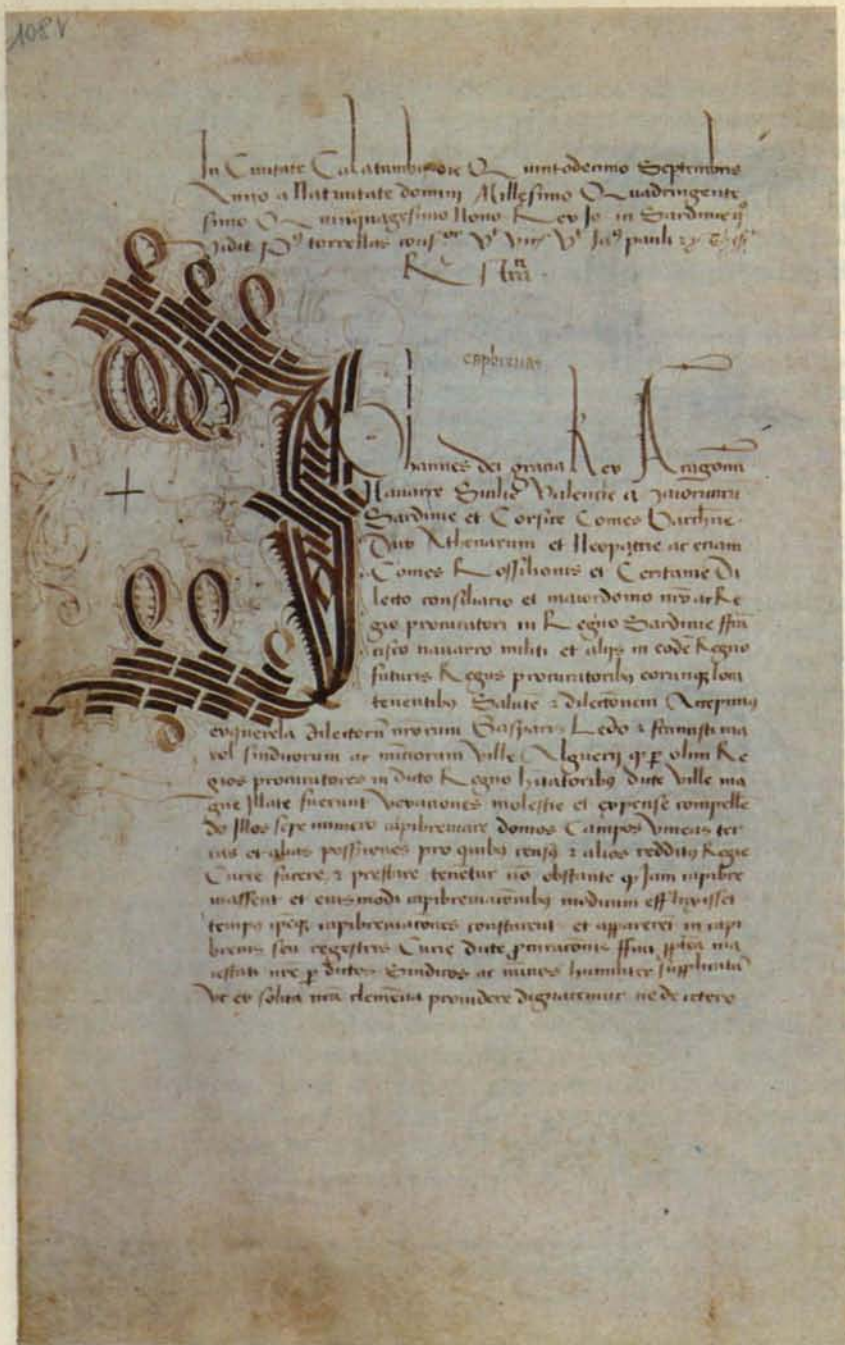 108 V
In Civitate Calatambi die Quintodecimo Septembris
Anno a Nativitate domini Millesimo Quadringente
simo Quinquagesimo Nono Rex Jo in Sardinie
vidit torrellas pauli
capbrevias
Johannes dei gracia Rex Aragonu
Navarre Sicilie Valencie Maioricaru
Sardinie et Corsice Comes Barchne
Dux Athenarum et Neopatrie ac etiam
Comes Rossilionis et Ceritanie Di
lecto consiliario et maiordomo nro ac Re
gio procuratori in Regno Sardinie ffran
cisco navarro militi et alijs in eode Regno
futuris Regiis procuratoribus eorumq locu
tenentibus Salute z dilectionem Accepimus
ex querela dilectoru nrorum Gasparis Ledo z ffrancisci ma
rol sindicorum ac nunciorum Ville Alguerij q p olim Re
gios procuratores in dicto Regno hitatoribus dicte Ville ma
gne Jllate fuerunt Vexationes molestie et expense compelle
do Jllos sepe numero capibreviare domos Campos Vineas ter
ras et alias possiones pro quibus census z alios redditus Regie
Curie facere z prestare tenetur no obstante q Jam capibre
viassent et eiusmodi capibreviationibus modicum effluxisset
tempus capibreviationes constarent et appareret in capi
brevis seu regestris Curie dicte pcurationis ffuit ma
iestati nre p dictos Sindicos ac nucios humiliter supplicatu
Vt ex solita nra clementia providere dignaremur ne de cetero